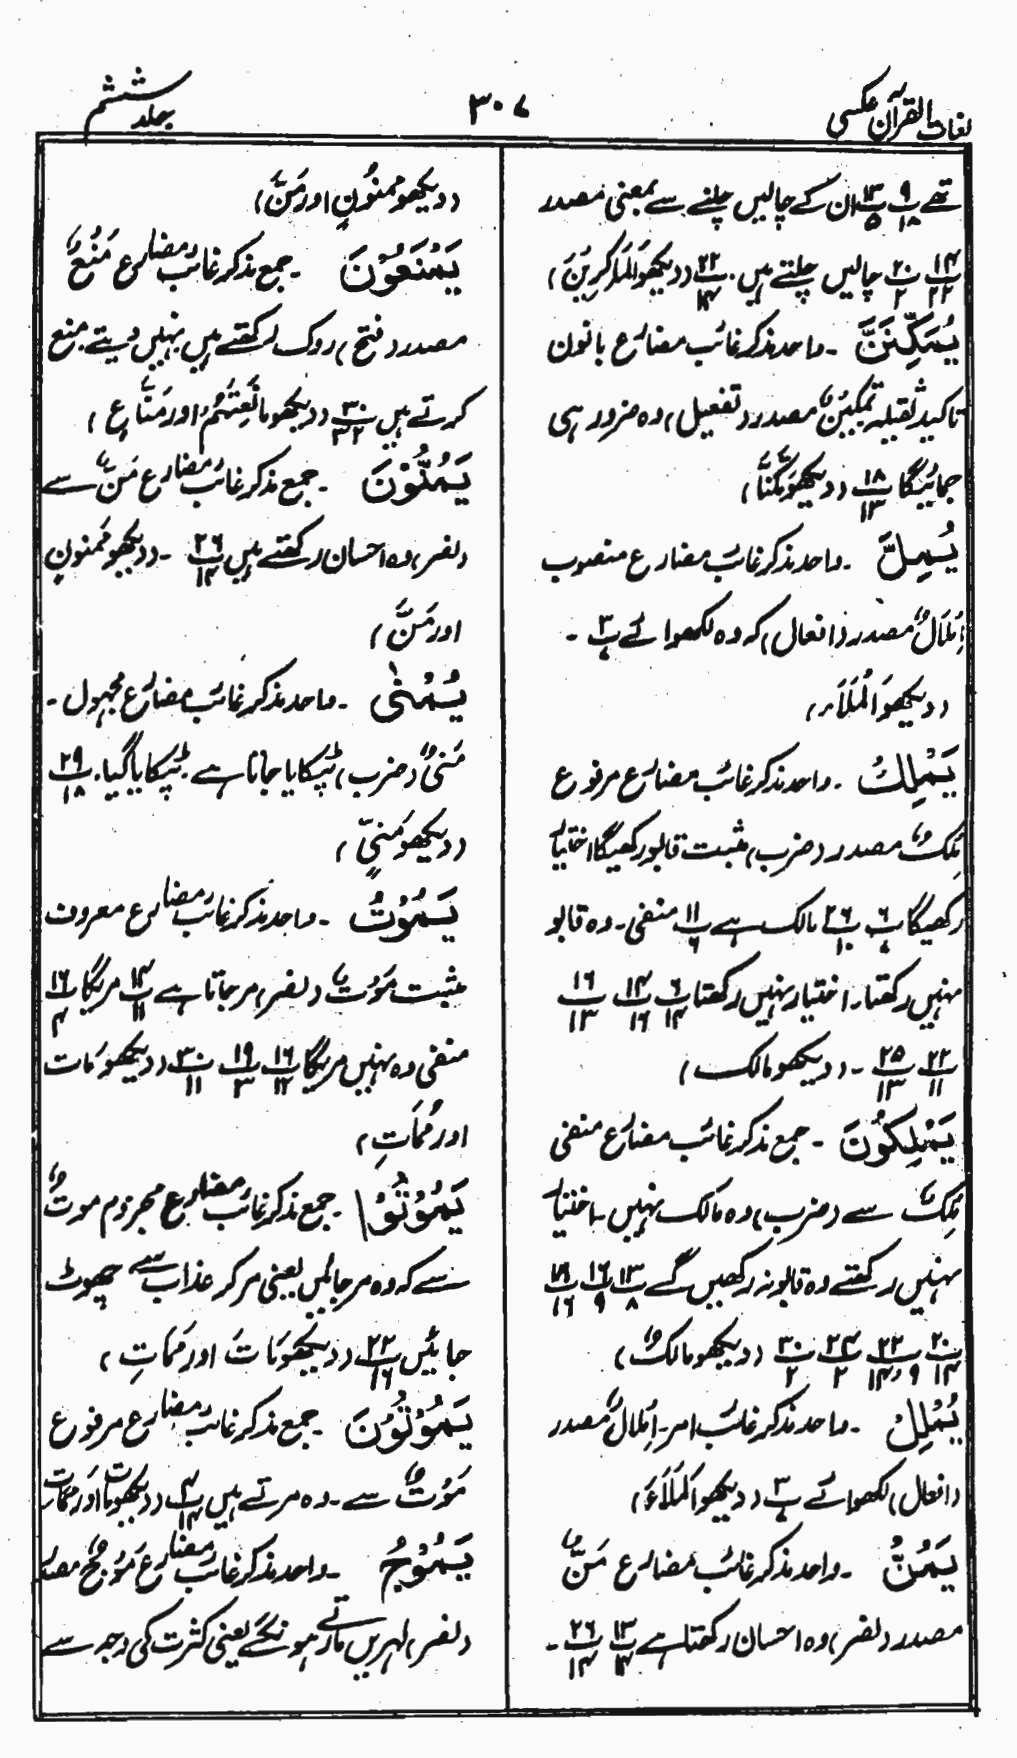 لغات القرآن عکسی
۳۰۷
جلد ششم
تھے ۹/۱۸ ۱۳/۵ ان کے چالیں چلنے سے بمعنی مصدر
۱۴/۲۲ ۲۰/۲ چالیں چلتے ہیں۔ ۲۲/۱۴ (دیکھو اَلْمَاکِرِیْنَ)
یُمَکِّنَنَّ ۔ واحد مذکر غائب مضارع بانون
تاکید ثقیلہ تَمْکِیْنٌ مصدر (تفعیل) وہ ضرور ہی
جمائیگا ۱۸/۱۳ (دیکھو مَکَّنَّا)
یُمِلَّ ۔ واحد مذکر غائب مضارع منصوب
اِمْلَالٌ مصدر (افعال) کہ وہ لکھوائے ۳/۷ ۔
(دیکھو اَلْمَلَاَء)
یَمْلِکُ ۔ واحد مذکر غائب مضارع مرفوع
مُلْکٌ مصدر (ضرب) مثبت قابو رکھیگا اختیار
رکھیگا ۶/۷ ۲۶/۱۰ مالک ہے ۱۱/۹ منفی ۔ وہ قابو
نہیں رکھتا۔ اختیار نہیں رکھتا ۶/۱۴ ۱۴/۱۶ ۱۶/۱۳
۲۲/۱۱ ۲۵/۱۳ ۔ (دیکھو مالک)
یَمْلِکُوْنَ ۔ جمع مذکر غائب مضارع منفی
مِلْکٌ سے (ضرب) وہ مالک نہیں ۔ اختیار
نہیں رکھتے وہ قابو نہ رکھیں گے ۱۳/۸ ۱۶/۹ ۱۹/۱۶
۲۰/۱۴ ۲۲/۹،۱۴ ۲۴/۲ ۳۰/۲ (دیکھو مالکٌ)
یُمْلِلْ ۔ واحد مذکر غائب امر۔ اِمْلَالٌ مصدر
(افعال) لکھوائے ۳/۷ (دیکھو اَلْمَلَاءَ)
یَمُنُّ ۔ واحد مذکر غائب مضارع مَنٌّ
مصدر (نصر) وہ احسان رکھتا ہے ۱۳/۱۴ ۲۶/۱۴ ۔
(دیکھو ممنونٍ اور مَنَّ)
یَمْنَعُوْنَ ۔ جمع مذکر غائب مضارع مَنْعٌ
مصدر (فتح) روک رکھتے ہیں نہیں دیتے۔ منع
کرتے ہیں ۳۰/۳۲ (دیکھو مانِعَتُہُمْ اور مَنَّاعٍ)
یَمُنُّوْنَ ۔ جمع مذکر غائب مضارع مَنٌّ سے
(نصر) وہ احسان رکھتے ہیں ۲۶/۱۴ ۔ (دیکھو ممنونٍ
اور مَنَّ)
یُمْنٰی ۔ واحد مذکر غائب مضارع مجہول ۔
مَنْیٌ (ضرب) ٹپکایا جاتا ہے ۔ ٹپکایا گیا۔ ۲۹/۱۸
(دیکھو مَنِیٍّ)
یَمُوْتُ ۔ واحد مذکر غائب مضارع معروف
مثبت مَوْتٌ (نصر) مرجاتا ہے ۱۴/۱۱ مریگا ۱۶/۴
منفی وہ نہیں مریگا ۱۶/۱۲ ۱۹/۳ ۳۰/۱۱ (دیکھو مَات
اور مَمَاتِ)
یَمُوْتُوْا ۔ جمع مذکر غائب مضارع مجزوم موتٌ
سے کہ وہ مرجائیں یعنی مرکر عذاب سے چھوٹ
جائیں ۲۲/۱۶ (دیکھو مَاتَ اور مَمَاتِ)
یَمُوْتُوْنَ ۔ جمع مذکر غائب مضارع مرفوع
مَوْتٌ سے ۔ وہ مرتے ہیں ۴/۱۴ (دیکھو مات اور ممات
یَمُوْجُ ۔ واحد مذکر غائب مضارع مَوْجٌ مصدر
(نصر) لہریں مارتے ہونگے یعنی کثرت کی وجہ سے